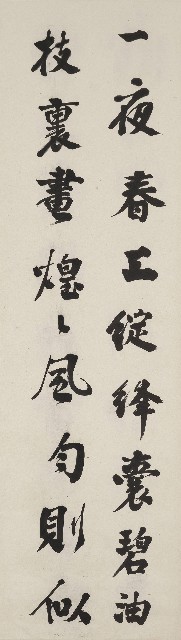 一夜春工綻絳囊碧油
枝裏畫煌〻風勻則似